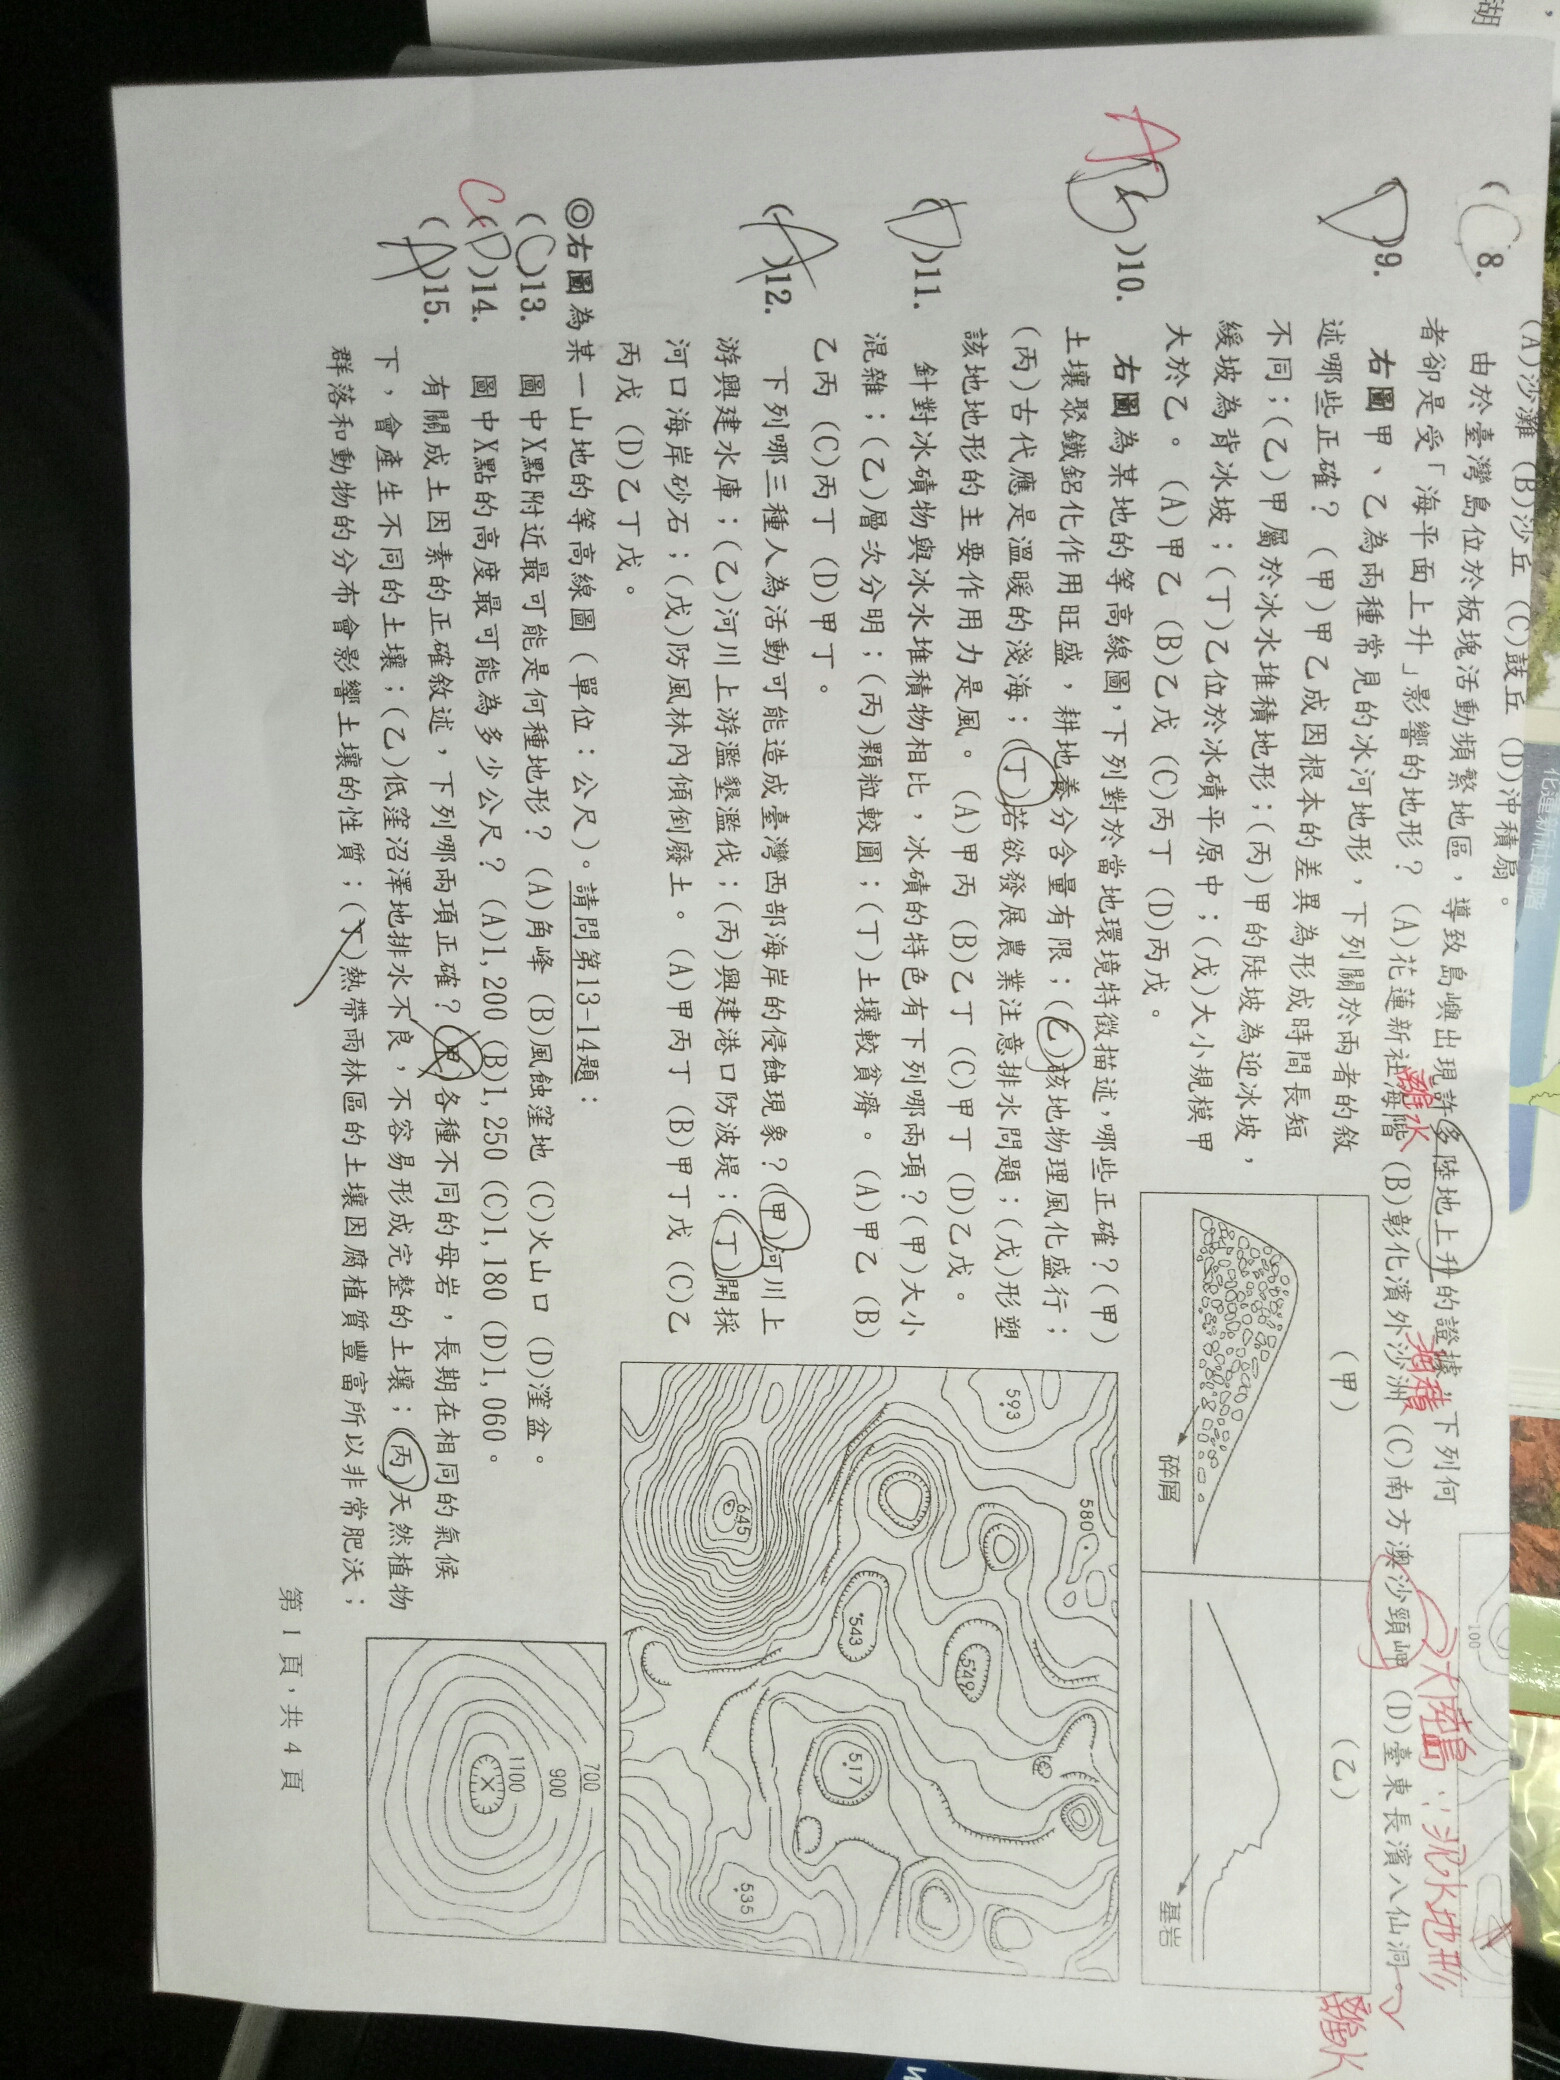 湖
(A)沙灘 (B)沙丘 (C)鼓丘 (D)沖積扇。
(C)8. 由於臺灣島位於板塊活動頻繁地區，導致島嶼出現許多陸地上升的證據，下列何
者卻是受「海平面上升」影響的地形？ (A)花蓮新社海階 (B)彰化濱外沙洲 (C)南方澳沙頸岬 (D)臺東長濱八仙洞。
離水
大陸島：沉水地形
離水
(D)9. 右圖甲、乙為兩種常見的冰河地形，下列關於兩者的敘
述哪些正確？ (甲)甲乙成因根本的差異為形成時間長短
不同；(乙)甲屬於冰水堆積地形；(丙)甲的陡坡為迎冰坡，
緩坡為背冰坡；(丁)乙位於冰磧平原中；(戊)大小規模甲
大於乙。 (A)甲乙 (B)乙戊 (C)丙丁 (D)丙戊。
(甲)
(乙)
碎屑
基岩
A
(B)10. 右圖為某地的等高線圖，下列對於當地環境特徵描述，哪些正確？(甲)
土壤聚鐵鋁化作用旺盛，耕地養分含量有限；(乙)該地物理風化盛行；
(丙)古代應是溫暖的淺海；(丁)若欲發展農業注意排水問題；(戊)形塑
該地地形的主要作用力是風。 (A)甲丙 (B)乙丁 (C)甲丁 (D)乙戊。
(D)11. 針對冰磧物與冰水堆積物相比，冰磧的特色有下列哪兩項？(甲)大小
混雜；(乙)層次分明；(丙)顆粒較圓；(丁)土壤較貧瘠。 (A)甲乙 (B)
乙丙 (C)丙丁 (D)甲丁。
(A)12. 下列哪三種人為活動可能造成臺灣西部海岸的侵蝕現象？(甲)河川上
游興建水庫；(乙)河川上游濫墾濫伐；(丙)興建港口防波堤；(丁)開採
河口海岸砂石；(戊)防風林內傾倒廢土。 (A)甲丙丁 (B)甲丁戊 (C)乙
丙戊 (D)乙丁戊。
593
580
645
543
549
517
535
◎右圖為某一山地的等高線圖（單位：公尺）。請問第13-14題：
(C)13. 圖中X點附近最可能是何種地形？ (A)角峰 (B)風蝕窪地 (C)火山口 (D)窪盆。
C
(D)14. 圖中X點的高度最可能為多少公尺？ (A)1,200 (B)1,250 (C)1,180 (D)1,060。
(A)15. 有關成土因素的正確敘述，下列哪兩項正確？ (甲)各種不同的母岩，長期在相同的氣候
下，會產生不同的土壤；(乙)低窪沼澤地排水不良，不容易形成完整的土壤；(丙)天然植物
群落和動物的分布會影響土壤的性質；(丁)熱帶雨林區的土壤因腐植質豐富所以非常肥沃；
700
900
1100
X
第 1 頁，共 4 頁